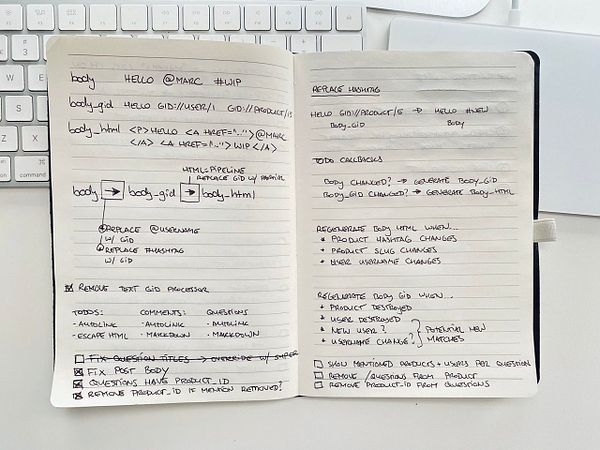 body HELLO @MARC #WIP
body_gid HELLO GID://USER/1 GID://PRODUCT/15
body_html <P>HELLO <A HREF="..">@MARC
</A> <A HREF="..">WIP</A>
HTML-PIPELINE
REPLACE GID W/
body → body_gid → body_html
REPLACE @USERNAME
W/ GID
REPLACE #HASHTAG
W/ GID
REMOVE TEXT GID PROCESSOR
TODOS: COMMENTS: QUESTIONS
- AUTOLINK - AUTOLINK - AUTOLINK
- ESCAPE HTML - MARKDOWN - MARKDOWN
FIX QUESTION TITLES → OVERRIDE W/ SUPER
FIX POST BODY
QUESTIONS HAVE PRODUCT_ID
REMOVE PRODUCT_ID IF MENTION REMOVED?
REPLACE HASHTAG
HELLO GID://PRODUCT/5 → HELLO #NEW
BODY_GID BODY
TODO CALLBACKS
BODY CHANGED? → GENERATE BODY_GID
BODY_GID CHANGED? → GENERATE BODY_HTML
REGENERATE BODY HTML WHEN...
* PRODUCT HASHTAG CHANGES
* PRODUCT SLUG CHANGES
* USER USERNAME CHANGES
REGENERATE BODY GID WHEN...
* PRODUCT DESTROYED
* USER DESTROYED
* NEW USER? } POTENTIAL NEW
* USERNAME CHANGE? MATCHES
SHOW MENTIONED PRODUCTS + USERS PER QUESTION
REMOVE /QUESTIONS FROM PRODUCT
REMOVE PRODUCT_ID FROM QUESTIONS
command